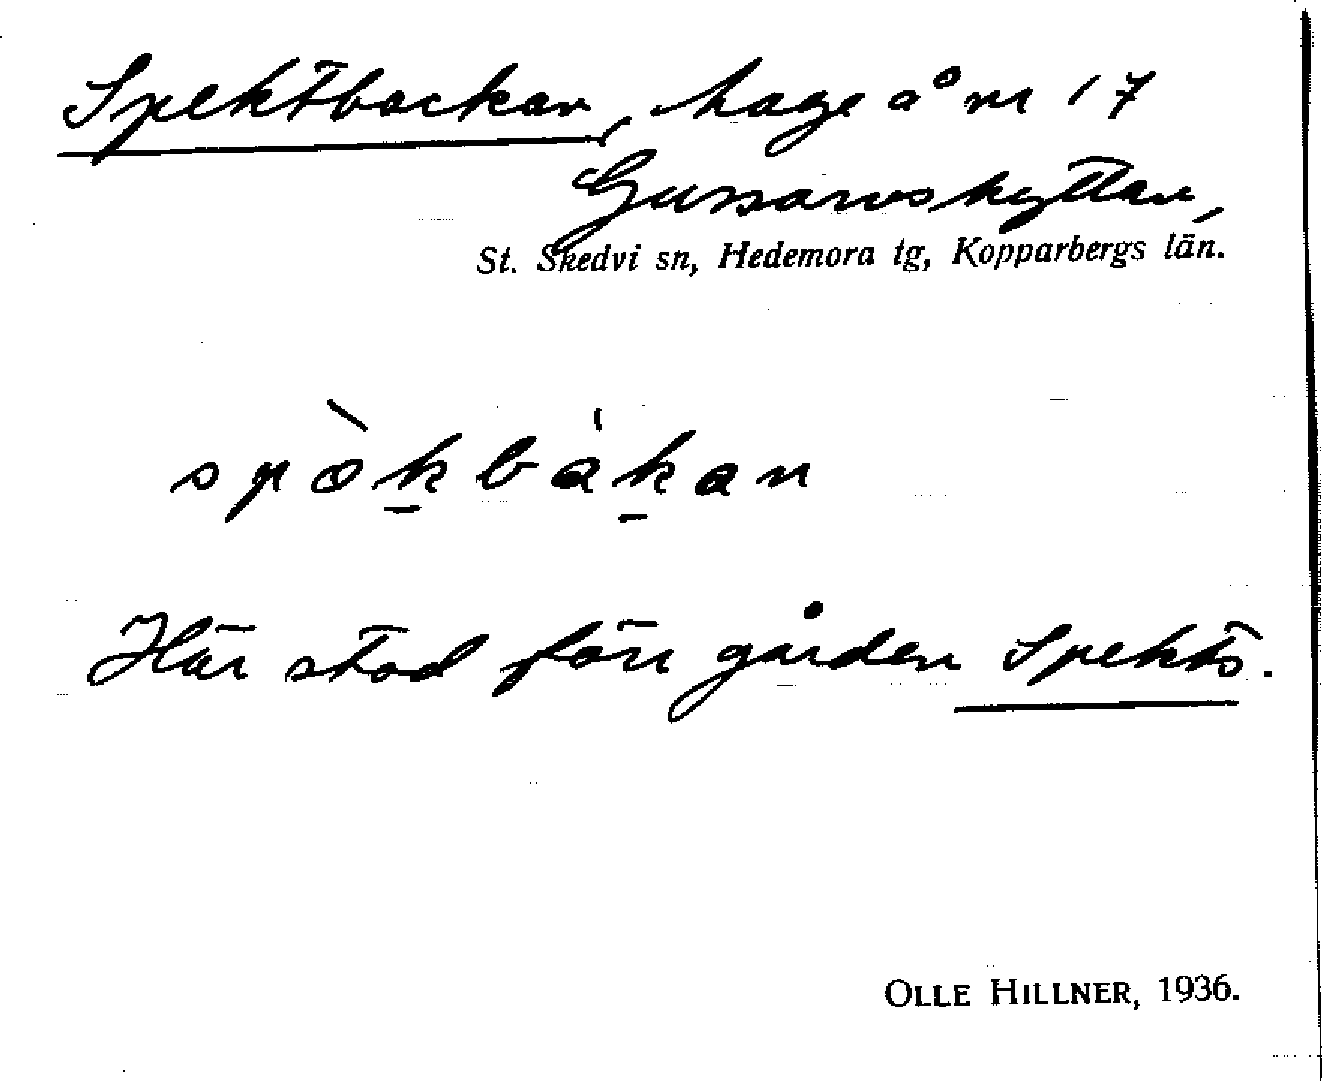 Spektbackan, hage å nr 17
Gussarvshyttan,
St. Skedvi sn, Hedemora tg, Kopparbergs län.
spò̱kbá̱kan
Här stod förr gården Spekts.
OLLE HILLNER, 1936.